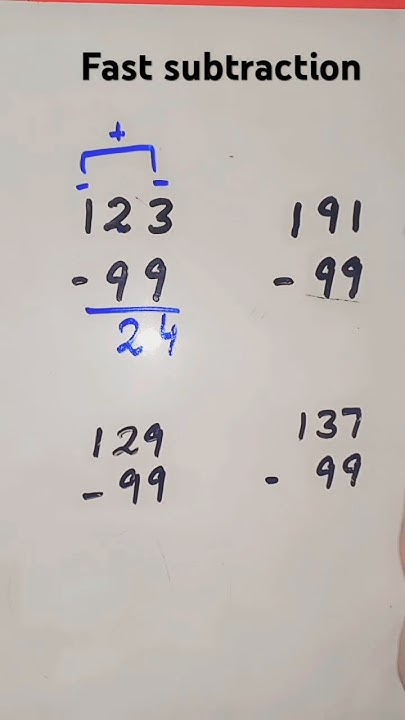 Fast subtraction
+
- -
123
- 99
24
191
- 99
129
- 99
137
- 99